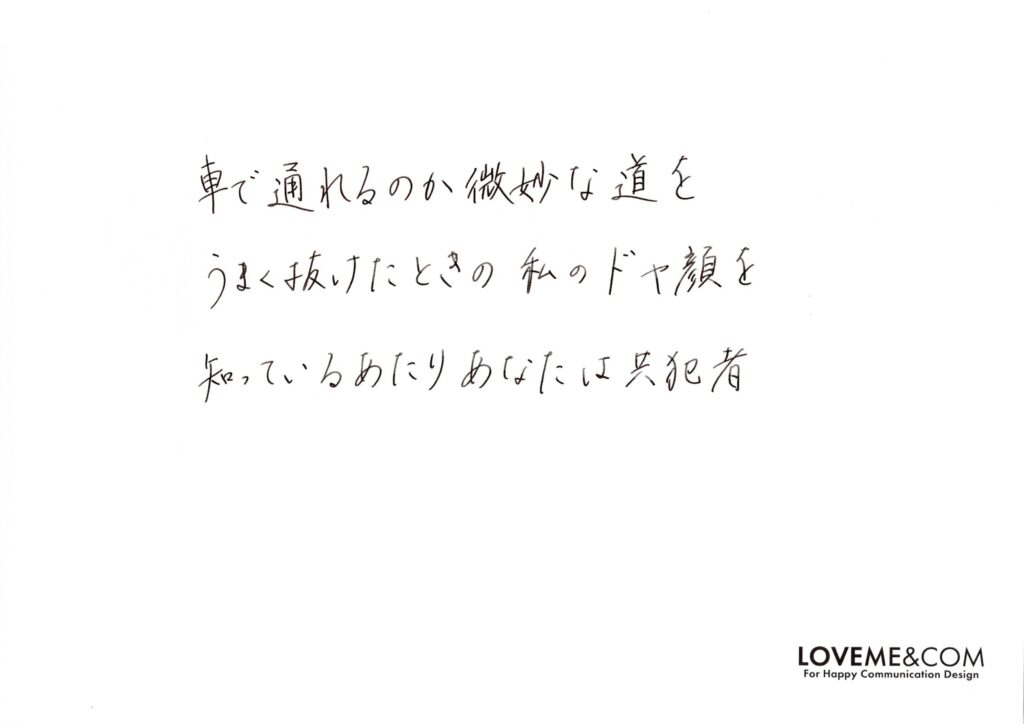 車で通れるのか微妙な道を
うまく抜けたときの私のドヤ顔を
知っているあたりあなたは共犯者
LOVEME&COM
For Happy Communication Design